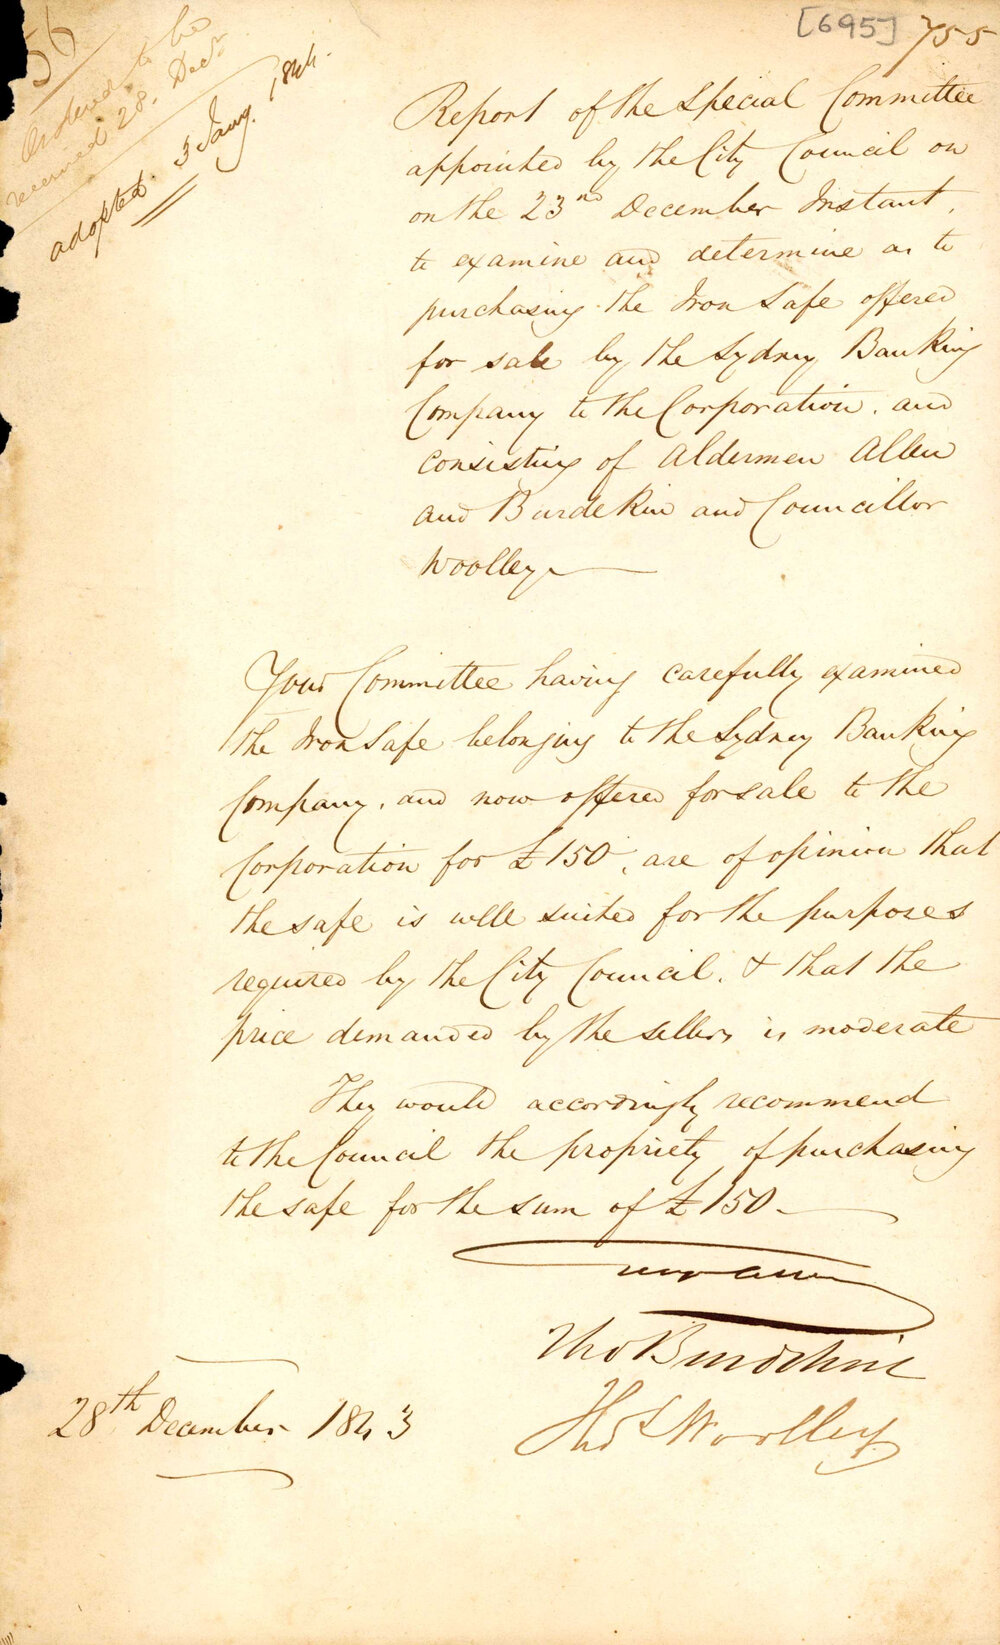 [695] 755
56
Ordered to be
received 28. Decr
adopted. 3 Jany. 1844.
Report of the Special Committee
appointed by the City Council on
on the 23rd December Instant,
to examine and determine as to
purchasing the Iron Safe offered
for sale by the Sydney Banking
Company to the Corporation, and
consisting of Aldermen Allen
and Burdekin and Councillor
Woolley
Your Committee having carefully examined
the Iron Safe belonging to the Sydney Banking
Company, and now offered for sale to the
Corporation for £150, are of opinion that
the safe is well suited for the purposes
required by the City Council, & that the
price demanded by the sellers is moderate
They would accordingly recommend
to the Council the propriety of purchasing
the safe for the sum of £150
Allen
Thos Burdekin
Thos Woolley
28th December 1843